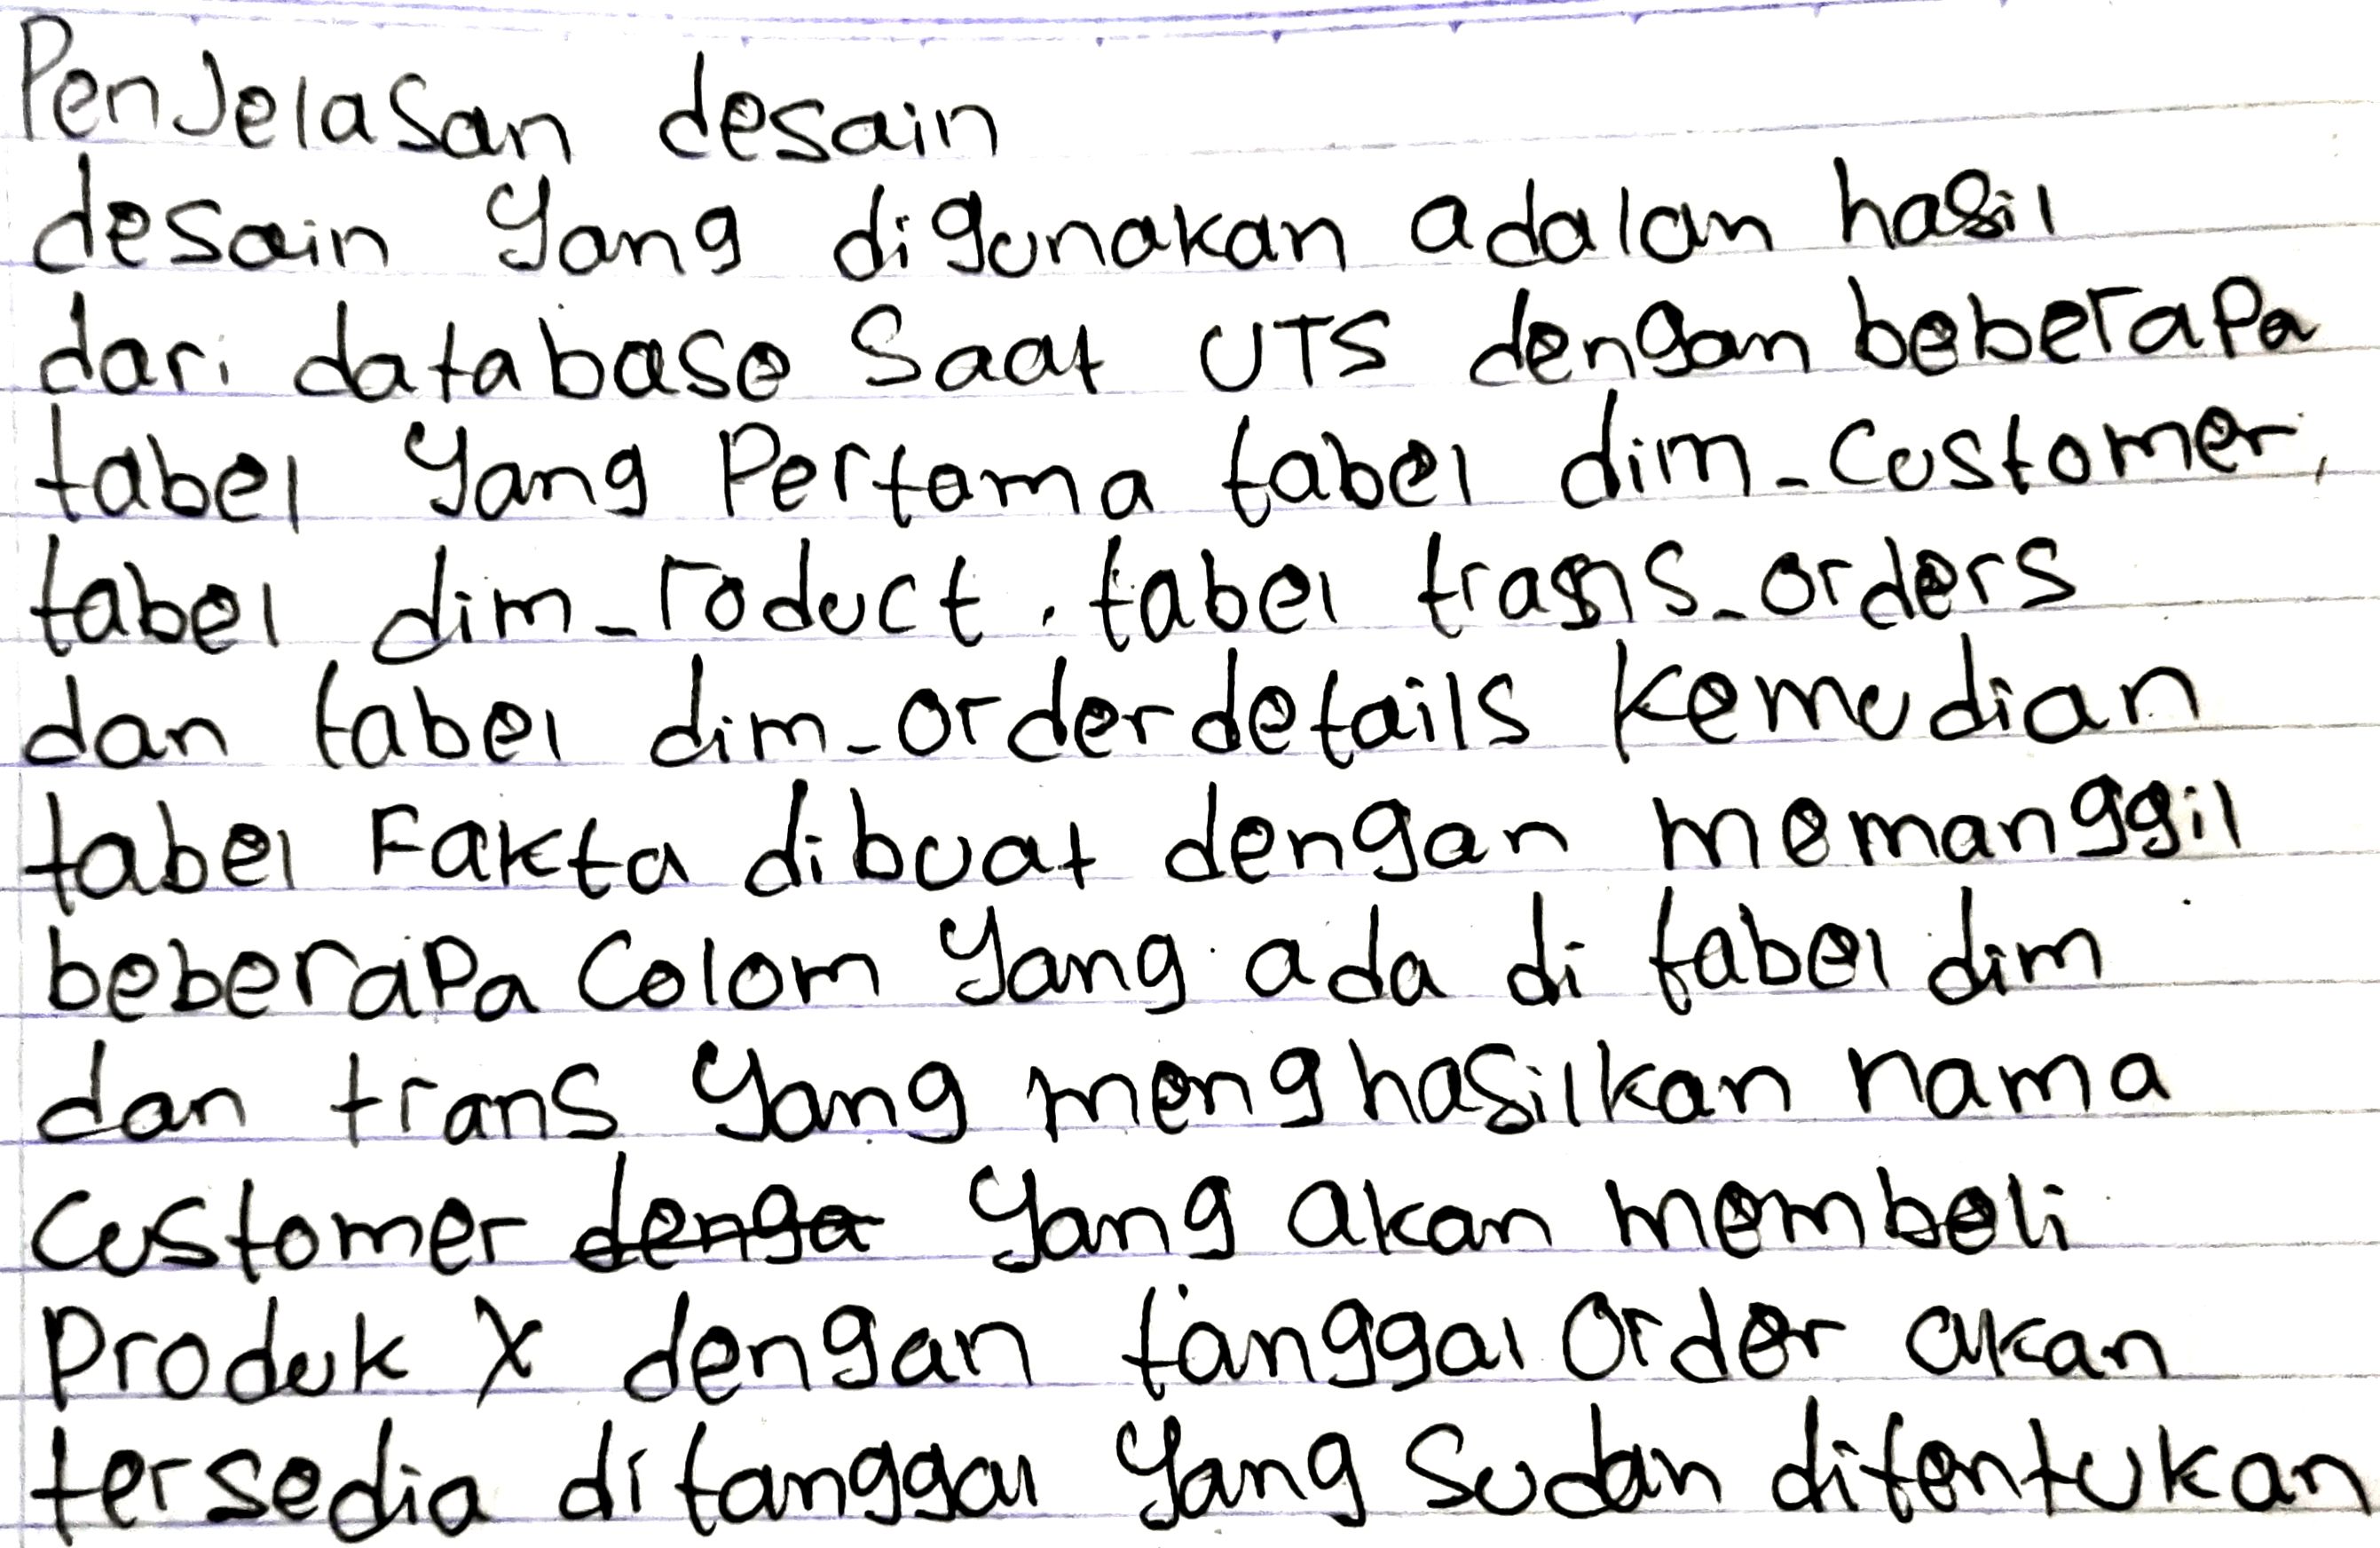 Penjelasan desain
desain yang digunakan adalah hasil
dari database saat UTS dengan beberapa
tabel yang Pertama tabel dim_customer,
tabel dim_roduct, tabel trans_orders
dan tabel dim_orderdetails kemudian
tabel Fakta dibuat dengan memanggil
beberapa Colom yang ada di tabel dim
dan trans yang menghasilkan nama
customer denga yang akan membeli
Produk X dengan tanggal order akan
tersedia ditanggal yang sudah ditentukan